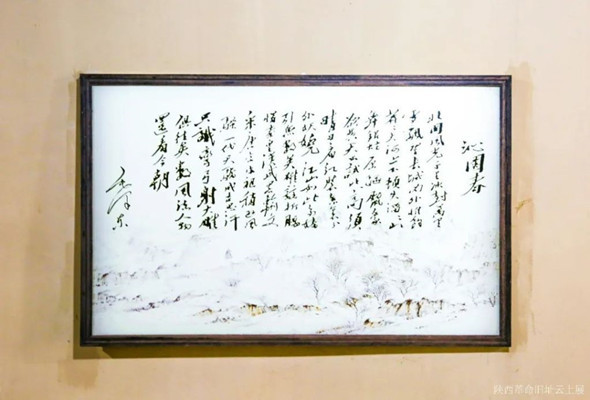 沁园春
北国風光千里冰封萬里
雪飘望长城内外惟馀莽
莽大河上下顿失滔滔山
舞银蛇原驰蜡象
欲与天公试比高须
晴日看红装素裹
分外妖娆江山如此多娇
引无数英雄竞折腰
惜秦皇漢武略输文
采唐宗宋祖稍逊風
骚一代天骄成吉思汗
只識弯弓射大雕
俱往矣数風流人物
還看今朝
毛泽东
陕西革命旧址云上展